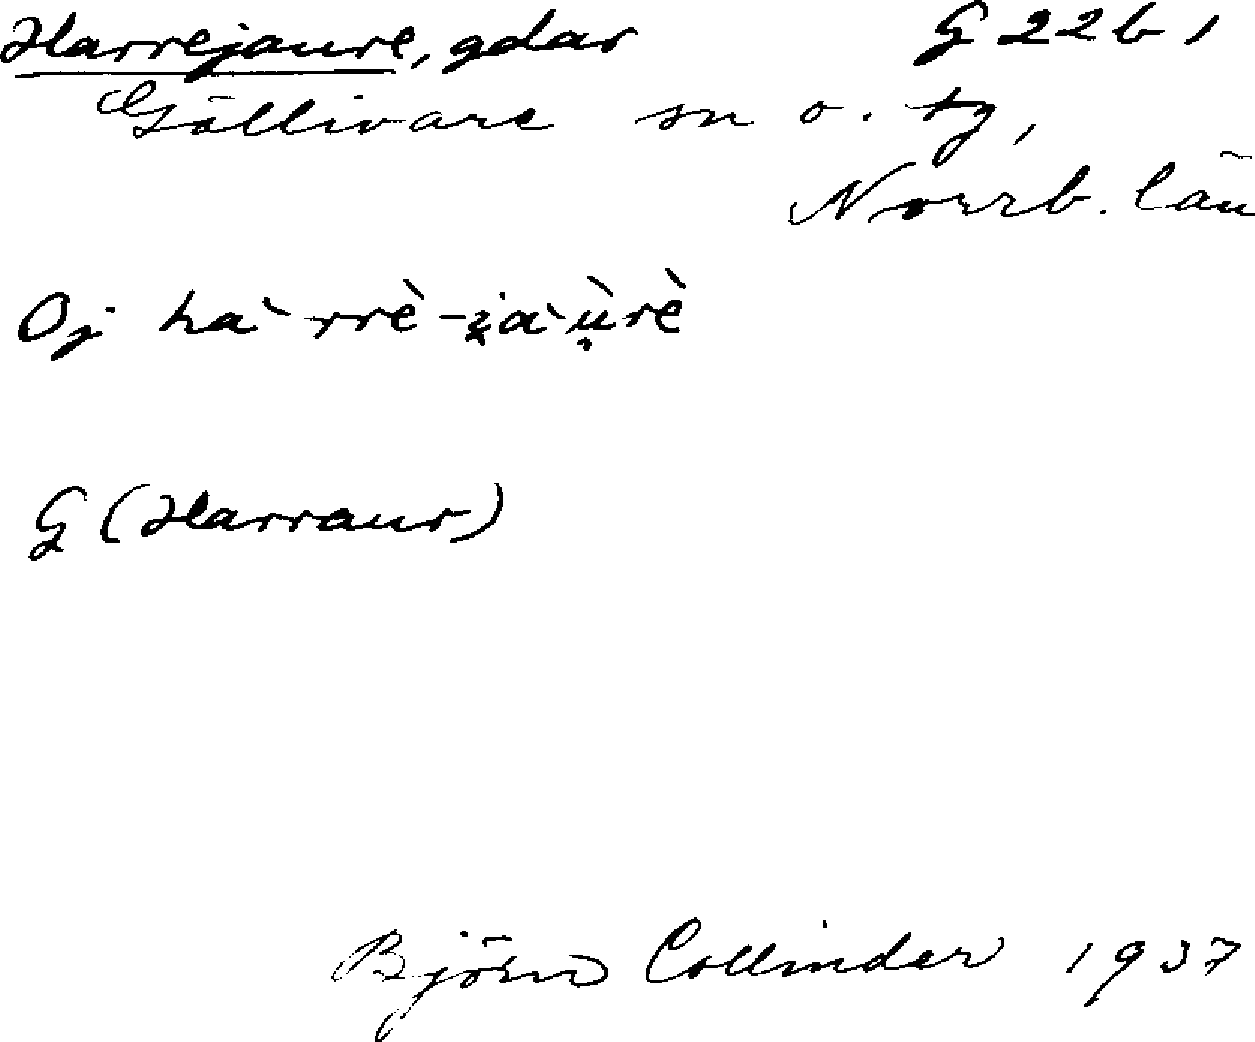 Harrejaure, gdar G 22 b 1
Gällivare sn o. tg,
Norrb. län
Oj ha`rrè-i̯a`ù̯rè
G (Harraur)
Björn Collinder 1937